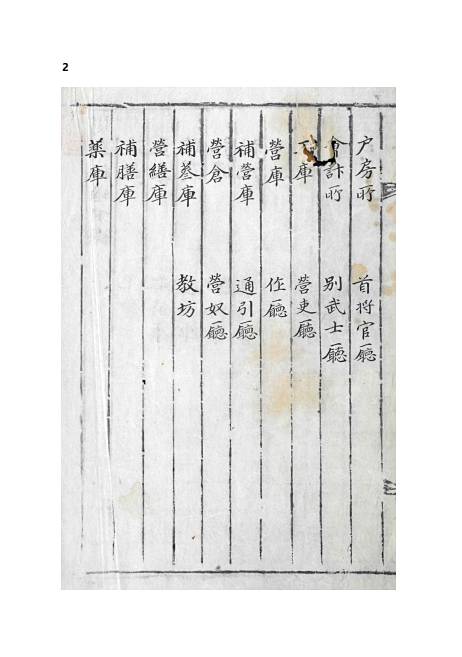 2
户房所 首将官廳
會計所 别武士廳
庫 營吏廳
營庫 作廳
補營庫 通引廳
營倉 營奴廳
補蔘庫 教坊
營繕庫
補膳庫
藥庫